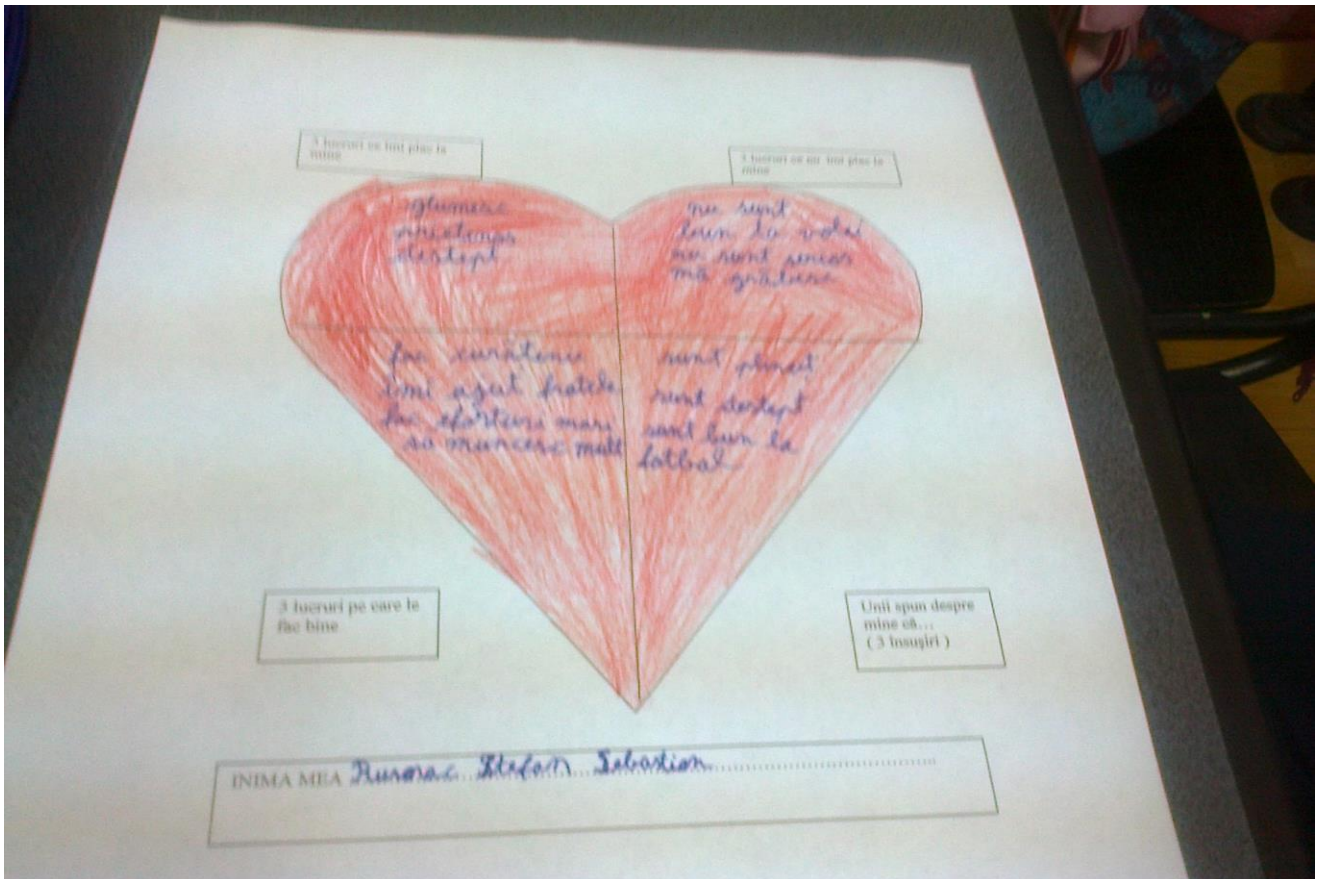 3 lucruri ce îmi plac la
mine
3 lucruri ce nu îmi plac la
mine
glumesc
prietenos
destept
nu sunt
bun la volei
nu sunt serios
mă grăbesc
fac curatenie
imi ajut fratele
fac eforturi mari
sa muncesc mult
sunt
sunt destept
sunt bun la
fotbal
3 lucruri pe care le
fac bine
Unii spun despre
mine că...
( 3 însuşiri )
INIMA MEA Stefan Sebastian